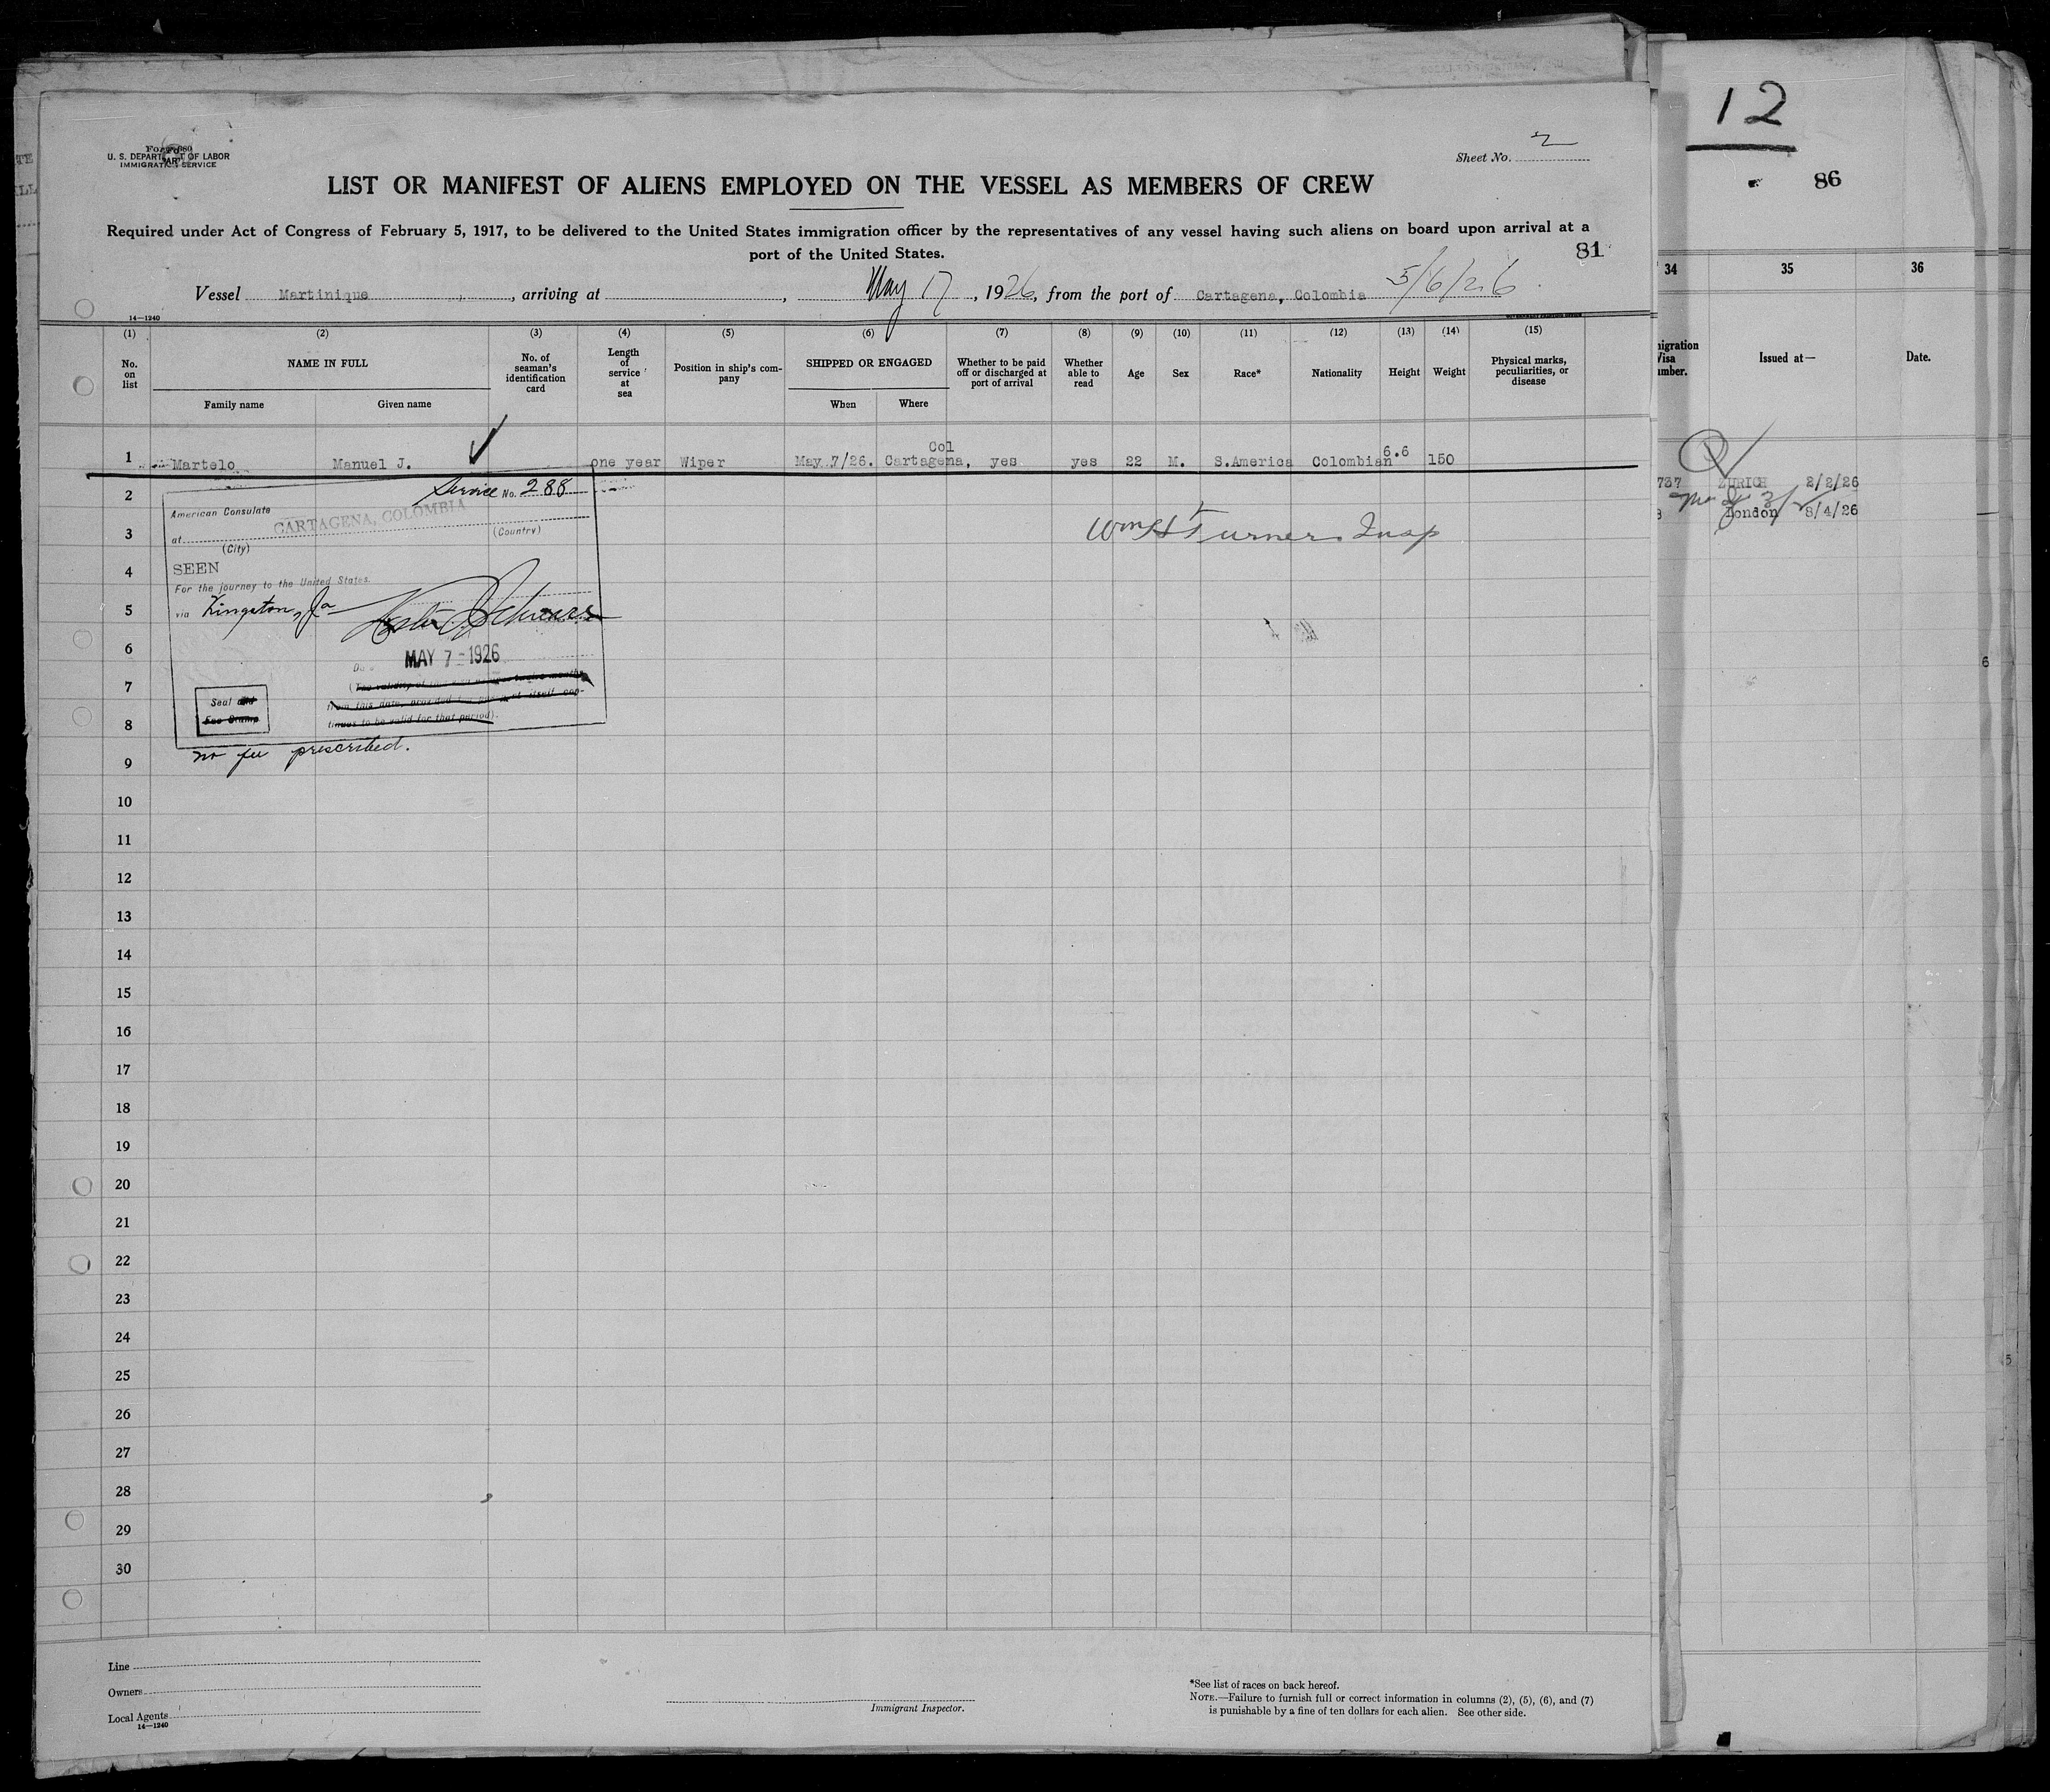 Form 680
U. S. DEPARTMENT OF LABOR
IMMIGRATION SERVICE
Sheet No. 2
LIST OR MANIFEST OF ALIENS EMPLOYED ON THE VESSEL AS MEMBERS OF CREW
Required under Act of Congress of February 5, 1917, to be delivered to the United States immigration officer by the representatives of any vessel having such aliens on board upon arrival at a
port of the United States.
81
Vessel Martinique, arriving at , May 17, 1926, from the port of Cartagena, Colombia 5/6/26
14—1240
(1) (2) (3) (4) (5) (6) (7) (8) (9) (10) (11) (12) (13) (14) (15)
No. on list
NAME IN FULL
Family name
Given name
No. of seaman's identification card
Length of service at sea
Position in ship's company
SHIPPED OR ENGAGED
When
Where
Whether to be paid off or discharged at port of arrival
Whether able to read
Age
Sex
Race*
Nationality
Height
Weight
Physical marks, peculiarities, or disease
1 Martelo Manuel J. one year Wiper May 7/26. Cartagena, Col yes yes 22 M. S.America Colombian 6.6 150
2
3
4
5
6
7
8
9
10
11
12
13
14
15
16
17
18
19
20
21
22
23
24
25
26
27
28
29
30
Service No. 288
American Consulate
at CARTAGENA, COLOMBIA
(City) (Country)
SEEN
For the journey to the United States.
via Kingston, Ja
MAY 7 - 1926
Seal and
Fee Stamp
(The validity of this
from this date, provided
tinues to be valid for that period).
no fee prescribed.
Wm H Turner Insp
Line
Owners
Local Agents
14—1240
Immigrant Inspector.
*See list of races on back hereof.
NOTE.—Failure to furnish full or correct information in columns (2), (5), (6), and (7)
is punishable by a fine of ten dollars for each alien. See other side.
12
86
34 35 36
Issued at—
Date.
737 ZURICH 2/2/26
London 8/4/26